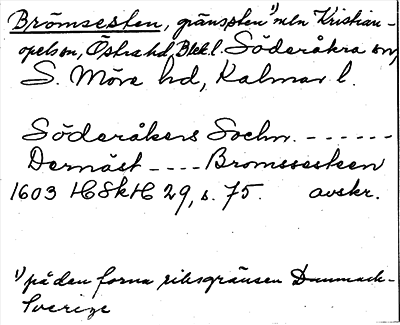 Brömsesten, gränssten ¹⁾ mln Kristian-
opels sn, Östra hd, Blek. l. Söderåkra sn,
S. Möre hd, Kalmar l.
Söderåkers Sochn. - - - - - -
Dernäst - - - - Bromssesteen
1603 HSkH 29, s. 75. avskr.
¹⁾ på den forna riksgränsen Danmark-
Sverige